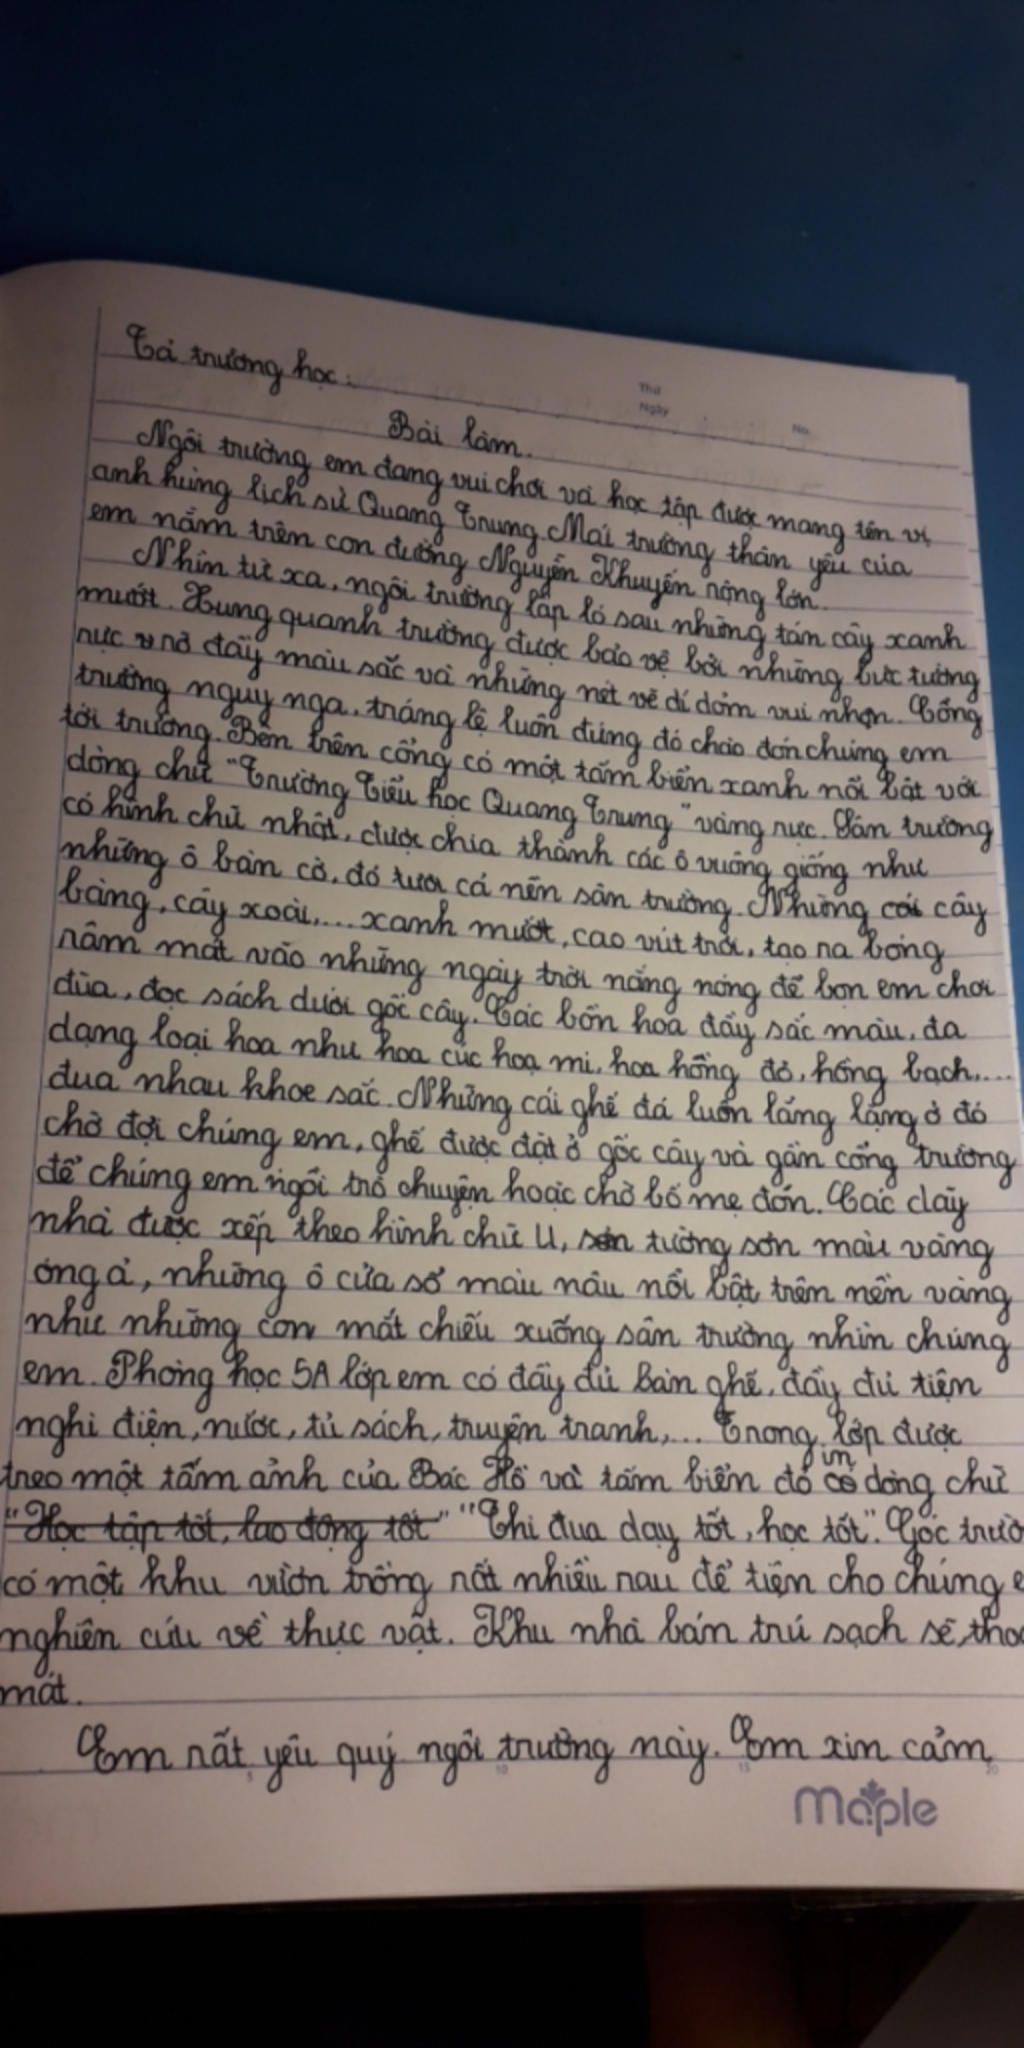 Tả trường học:
Thứ
Ngày
No.
Bài làm.
Ngôi trường em đang vui chơi và học tập được mang tên vị
anh hùng lịch sử Quang Trung. Mái trường thân yêu của
em nằm trên con đường Nguyễn Khuyến rộng lớn.
Nhìn từ xa, ngôi trường lấp ló sau những tán cây xanh
mướt. Xung quanh trường được bảo vệ bởi những bức tường
rực rỡ đầy màu sắc và những nét vẽ dí dỏm vui nhộn. Cổng
trường nguy nga, tráng lệ luôn đứng đó chào đón chúng em
tới trường. Bên trên cổng có một tấm biển xanh nổi bật với
dòng chữ "Trường Tiểu học Quang Trung" vàng rực. Sân trường
có hình chữ nhật, được chia thành các ô vuông giống như
những ô bàn cờ, đó là cả nền sân trường. Những cây
bàng, cây xoài,... xanh mướt, cao vút trời, tạo ra bóng
râm mát vào những ngày trời nắng nóng để bọn em chơi
đùa, đọc sách dưới gốc cây. Các bồn hoa đầy sắc màu, đa
dạng loại hoa như hoa cúc họa mi, hoa hồng đỏ, hồng bạch,...
đua nhau khoe sắc. Những cái ghế đá luôn lẳng lặng ở đó
chờ đợi chúng em, ghế được đặt ở gốc cây và gần cổng trường
để chúng em ngồi trò chuyện hoặc chờ bố mẹ đón. Các dãy
nhà được xếp theo hình chữ U, tường sơn màu vàng
óng ả, những ô cửa sổ màu nâu nổi bật trên nền vàng
như những con mắt chiếu xuống sân trường nhìn chúng
em. Phòng học 5A lớp em có đầy đủ bàn ghế, đầy đủ tiện
nghi điện, nước, tủ sách, truyện tranh,... Trong lớp được
treo một tấm ảnh của Bác Hồ và tấm biển đỏ in dòng chữ
"Học tập tốt, lao động tốt" "Thi đua dạy tốt, học tốt". Góc trườ
có một khu vườn trồng rất nhiều rau để tiện cho chúng e
nghiên cứu về thực vật. Khu nhà bán trú sạch sẽ, tho
mát.
Em rất yêu quý ngôi trường này. Em xin cảm
5 10 15 20
maple